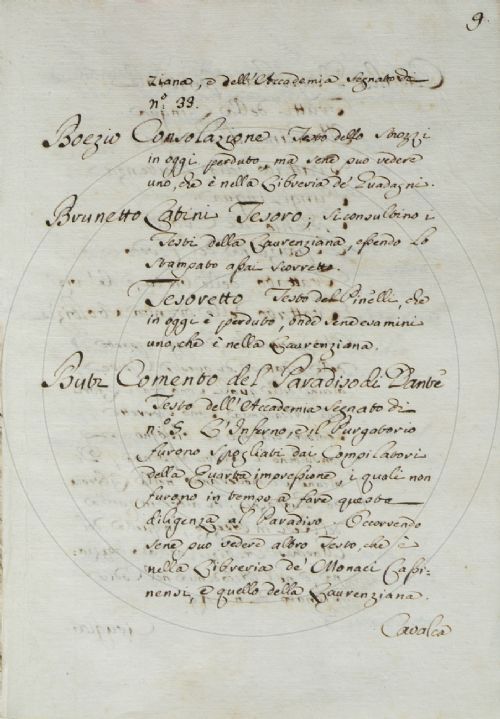 9.
ziana, e dell'Accademia segnato di
n.º 33.
Boezio Consolazione Testo dello Strozzi
in oggi perduto, ma sene può vedere
uno, che è nella Libreria de' Guadagni.
Brunetto Latini Tesoro; si consultino i
Testi della Laurenziana, essendo lo
stampato assai scorretto.
Tesoretto Testo del Pinelli, che
in oggi è perduto, onde sene esamini
uno, che è nella Laurenziana.
Buti Comento del Paradiso di Dante
Testo dell'Accademia segnato di
n.º 5. L'Inferno, e il Purgatorio
furono spogliati dai Compilatori
della Quarta impressione, i quali non
furono in tempo a fare questa
diligenza al Paradiso. Occorrendo
sene può vedere altro Testo, che è
nella Libreria de' Monaci Cassi-
nensi, e quello della Laurenziana.
Cavalca